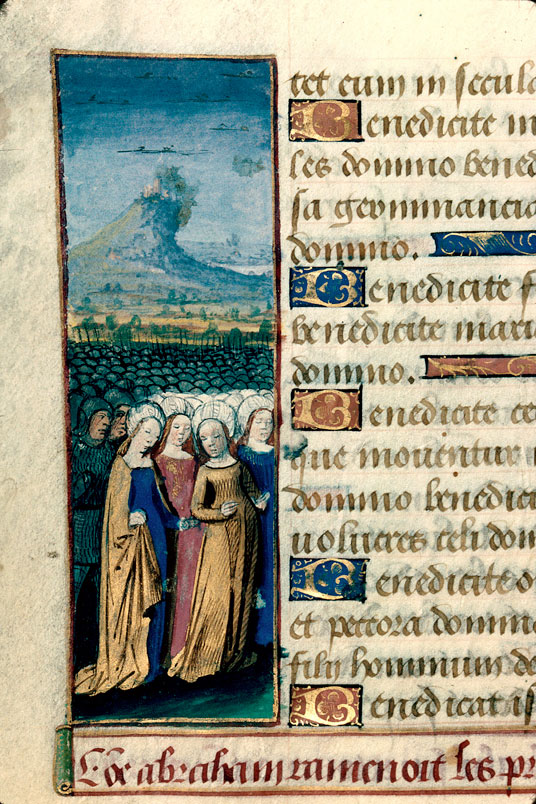 tet eum in secula
Benedicite in
les domino bened
sa germinancia
domino.
Benedicite f
benedicite mari
domino.
Benedicite ce
que mouentur
domino benedici
uolucres celi dom
Benedicite o
et peccora domin
filij hominum do
Benedicat is
Coe abraham ramenoit les pr